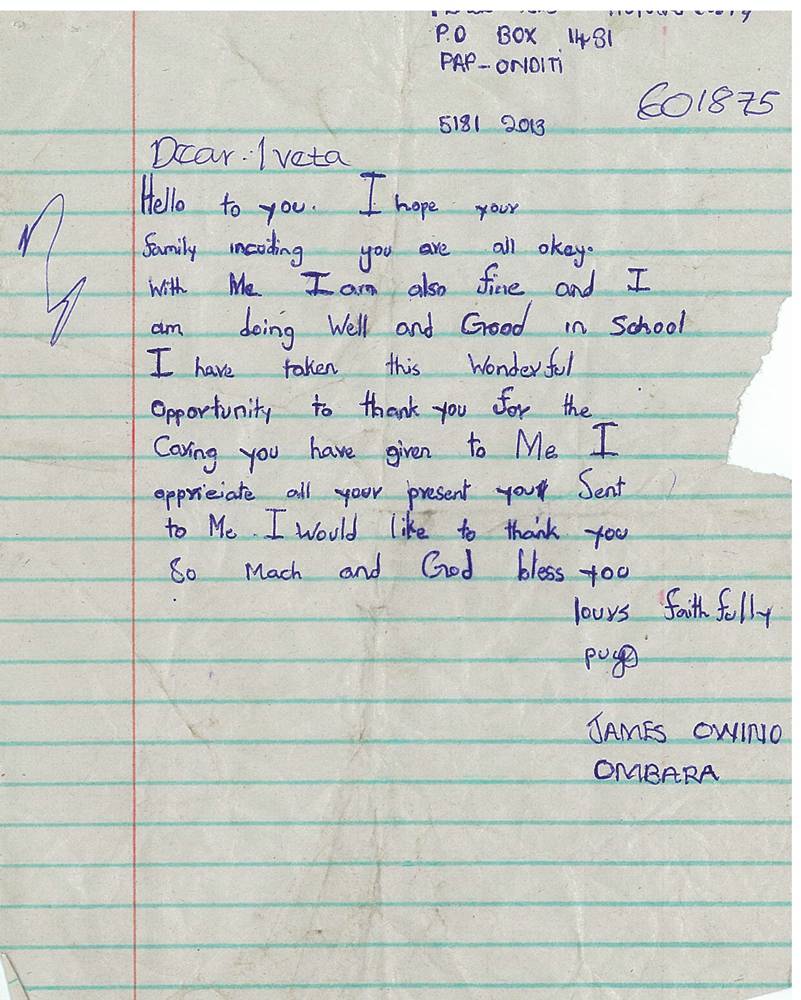 P.O BOX 1481
PAP-ONDITI
601875
5181 2013
Dear. Iveta
Hello to you. I hope your
family incuding you are all okay.
With Me I am also fine and I
am doing Well and Good in School
I have taken this Wonderful
Opportunity to thank you for the
Caring you have given to Me I
appreiciate all your present your Sent
to Me. I Would like to thank you
So Mach and God bless you
Yours faithfully
JAMES OWINO
OMBARA